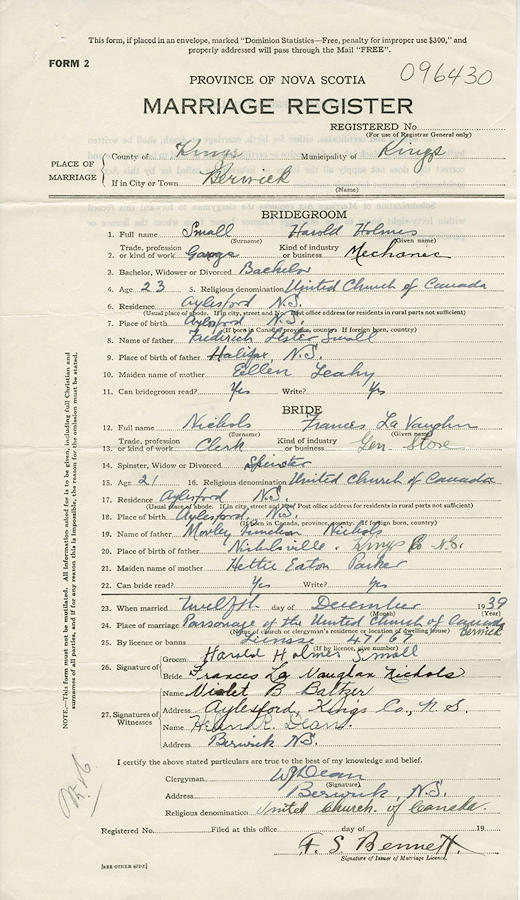 This form, if placed in an envelope, marked "Dominion Statistics—Free, penalty for improper use $300," and
properly addressed will pass through the Mail "FREE".
FORM 2
096430
PROVINCE OF NOVA SCOTIA
MARRIAGE REGISTER
REGISTERED No.
(For use of Registrar General only)
PLACE OF MARRIAGE
County of Kings Municipality of Kings
If in City or Town Berwick
(Name)
BRIDEGROOM
1. Full name Small Harold Holmes
(Surname) (Given name)
2. Trade, profession or kind of work Garage Kind of industry or business Mechanic
3. Bachelor, Widower or Divorced Bachelor
4. Age 23 5. Religious denomination United Church of Canada
6. Residence Aylesford N.S.
(Usual place of abode. If in city, street and No. Post office address for residents in rural parts not sufficient)
7. Place of birth Aylesford N.S.
(If born in Canada, province, county. If foreign born, country)
8. Name of father Frederick Lester Small
9. Place of birth of father Halifax, N.S.
10. Maiden name of mother Ellen Leahy
11. Can bridegroom read? Yes Write? Yes
BRIDE
12. Full name Nichols Frances La Vaughn
(Surname) (Given name)
13. Trade, profession or kind of work Clerk Kind of industry or business Gen. Store
14. Spinster, Widow or Divorced Spinster
15. Age 21 16. Religious denomination United Church of Canada
17. Residence Aylesford N.S.
(Usual place of abode. If in city, street and No. Post office address for residents in rural parts not sufficient)
18. Place of birth Aylesford, N.S.
(If born in Canada, province, county. If foreign born, country)
19. Name of father Morley Nichols
20. Place of birth of father Nicholsville, Kings Co N.S.
21. Maiden name of mother Hettie Eaton Parker
22. Can bride read? Yes Write? Yes
23. When married Twelfth day of December 1939
(Month) (Year)
24. Place of marriage Parsonage of the United Church of Canada Berwick
(Name of church or clergyman's residence or location of dwelling house)
25. By licence or banns License 47167
(If by licence, give number)
26. Signature of
Groom Harold Holmes Small
Bride Frances La Vaughn Nichols
27. Signatures of Witnesses
Name Violet B Baltzer
Address Aylesford, Kings Co., N.S.
Name Helen R. Dean
Address Berwick N.S.
I certify the above stated particulars are true to the best of my knowledge and belief.
Clergyman W Dean
(Signature)
Address Berwick, N.S.
Religious denomination United Church of Canada.
Registered No. Filed at this office day of 19
F. S. Bennett
Signature of Issuer of Marriage Licence.
[SEE OTHER SIDE]
NOTE.—This form must not be mutilated. All information asked for is to be given, including full Christian and
surnames of all parties, and if for any reason this is impossible, the reason for the omission must be stated.